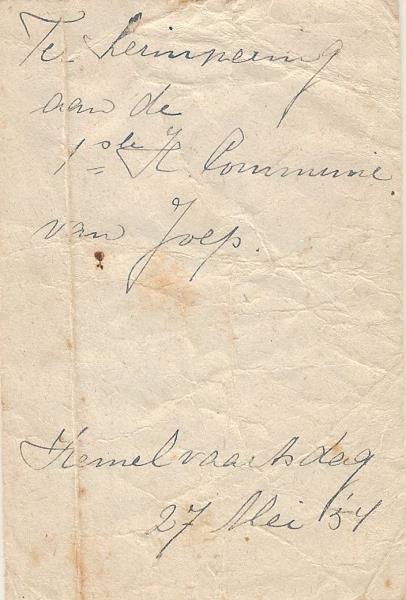 Ter herinnering
aan de
1ste H. Communie
van Joep.
Hemelvaartsdag
27 Mei '54